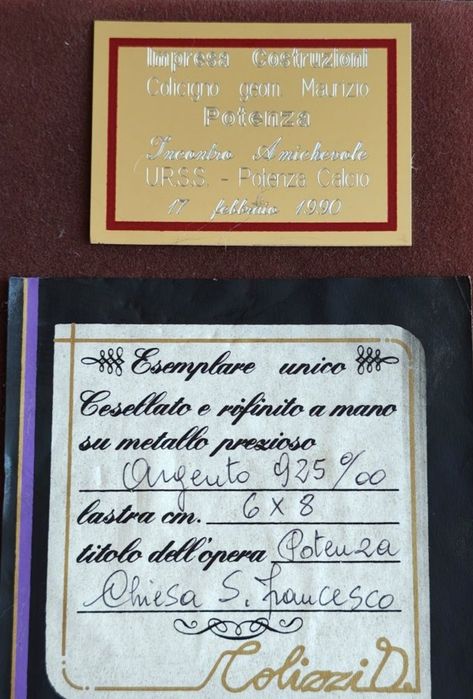 Impresa Costruzioni
Colicigno geom. Maurizio
Potenza
Incontro Amichevole
U.R.S.S. - Potenza Calcio
17 febbraio 1990
Esemplare unico
Cesellato e rifinito a mano
su metallo prezioso
Argento 925‰
lastra cm. 6 x 8
titolo dell'opera Potenza
Chiesa S. Francesco
Colizzi D.